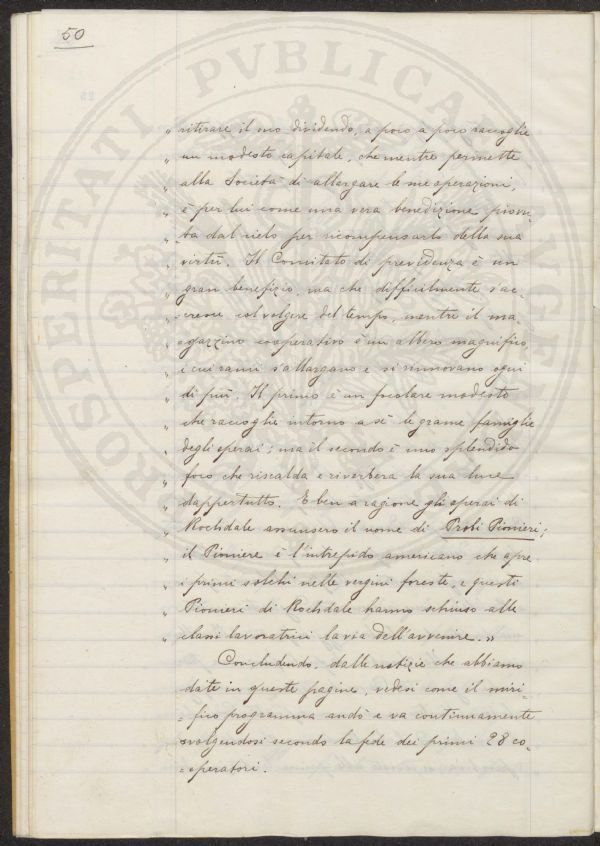 50
" ritirare il suo dividendo, a poco a poco raccoglie
" un modesto capitale, che mentre permette
" alla Società di allargare le sue operazioni,
" è per lui come una vera benedizione piovu-
" ta dal cielo per ricompensarlo della sua
" virtù. Il Comitato di previdenza è un
" gran benefizio, ma che difficilmente s'ac-
" cresce col volgere del tempo, mentre il ma-
" gazzino cooperativo è un albero magnifico,
" i cui rami s'allargano e si rinnovano ogni
" dì più. Il primo è un focolare modesto
" che raccoglie intorno a sè le grame famiglie
" degli operai; ma il secondo è uno splendido
" foco che riscalda e riverbera la sua luce
" dappertutto. E ben a ragione gli operai di
" Rochdale assunsero il nome di Probi Pionieri;
" il Pioniere è l'intrepido americano che apre
" i primi solchi nelle vergini foreste, e questi
" Pionieri di Rochdale hanno schiuso alle
" classi lavoratrici la via dell'avvenire."
Concludendo, dalle notizie che abbiamo
date in queste pagine, vedesi come il miri-
= fico programma andò e va continuamente
svolgendosi secondo la fede dei primi 28 co-
= operatori.
PROSPERITATI PVBLICAE